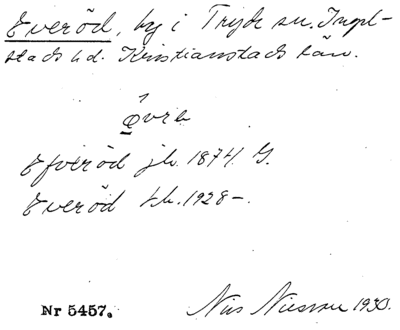 Everöd, by i Tryde sn. Ingel-
stads hd. Kristianstads län.
Övre
Efveröd jb. 1874. G.
Everöd tk. 1928-.
Nr 5457. Nils Nilsson 1930.